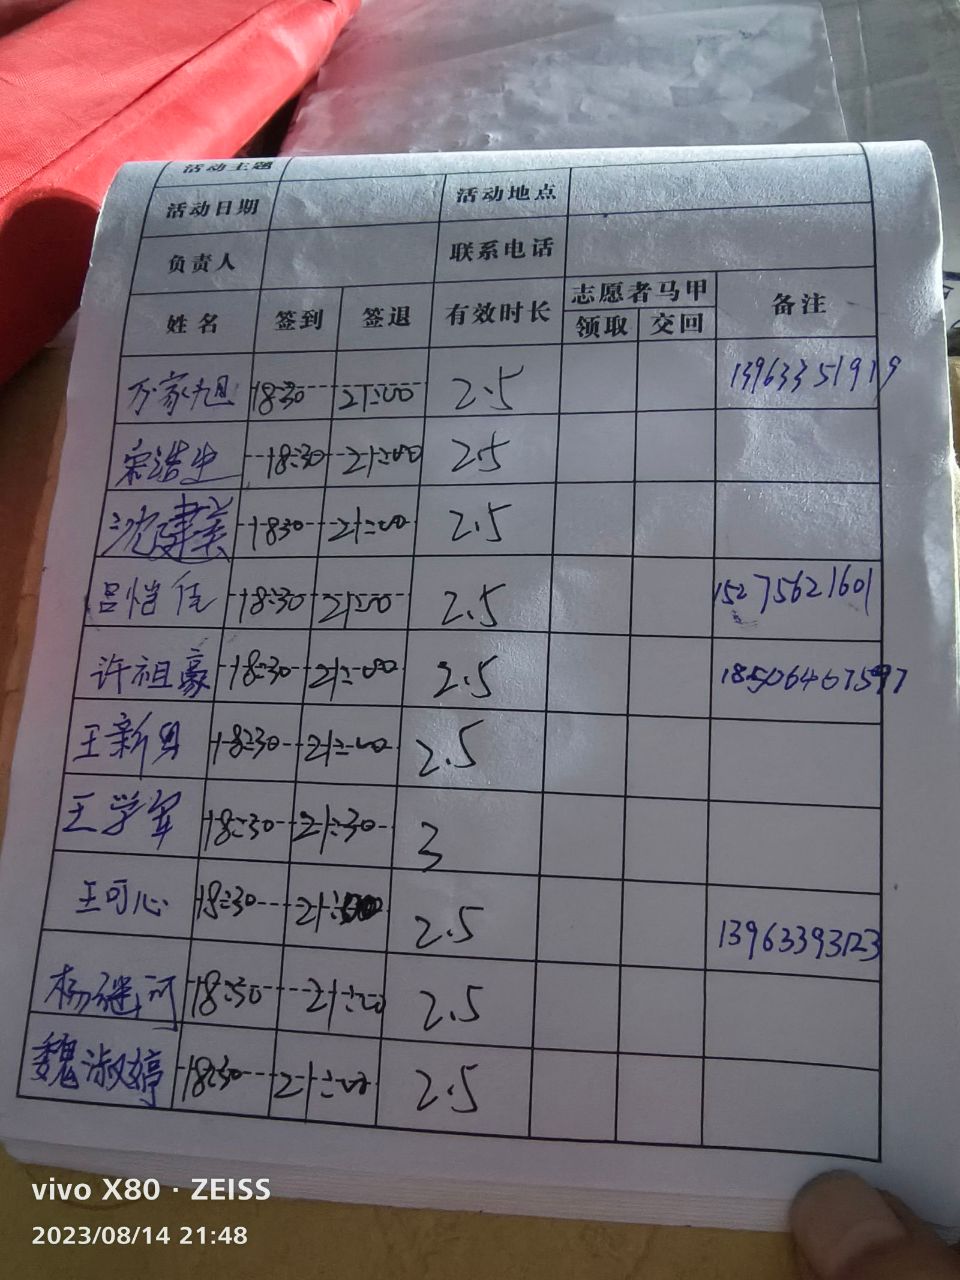 活动主题
活动日期 活动地点
负责人 联系电话
姓名 签到 签退 有效时长 志愿者马甲 备注
领取 交回
万家旭 18:30 21:00 2.5 13963351919
宋浩生 18:30 21:00 2.5
沈建美 18:30 21:00 2.5
吕恺 18:30 21:00 2.5 15275621601
许祖豪 18:30 21:00 2.5 18506467597
王新 18:30 21:00 2.5
王学军 18:30 21:30 3
王可心 18:30 21:00 2.5 13963393123
杨继河 18:30 21:00 2.5
魏淑婷 18:30 21:00 2.5
vivo X80 · ZEISS
2023/08/14 21:48